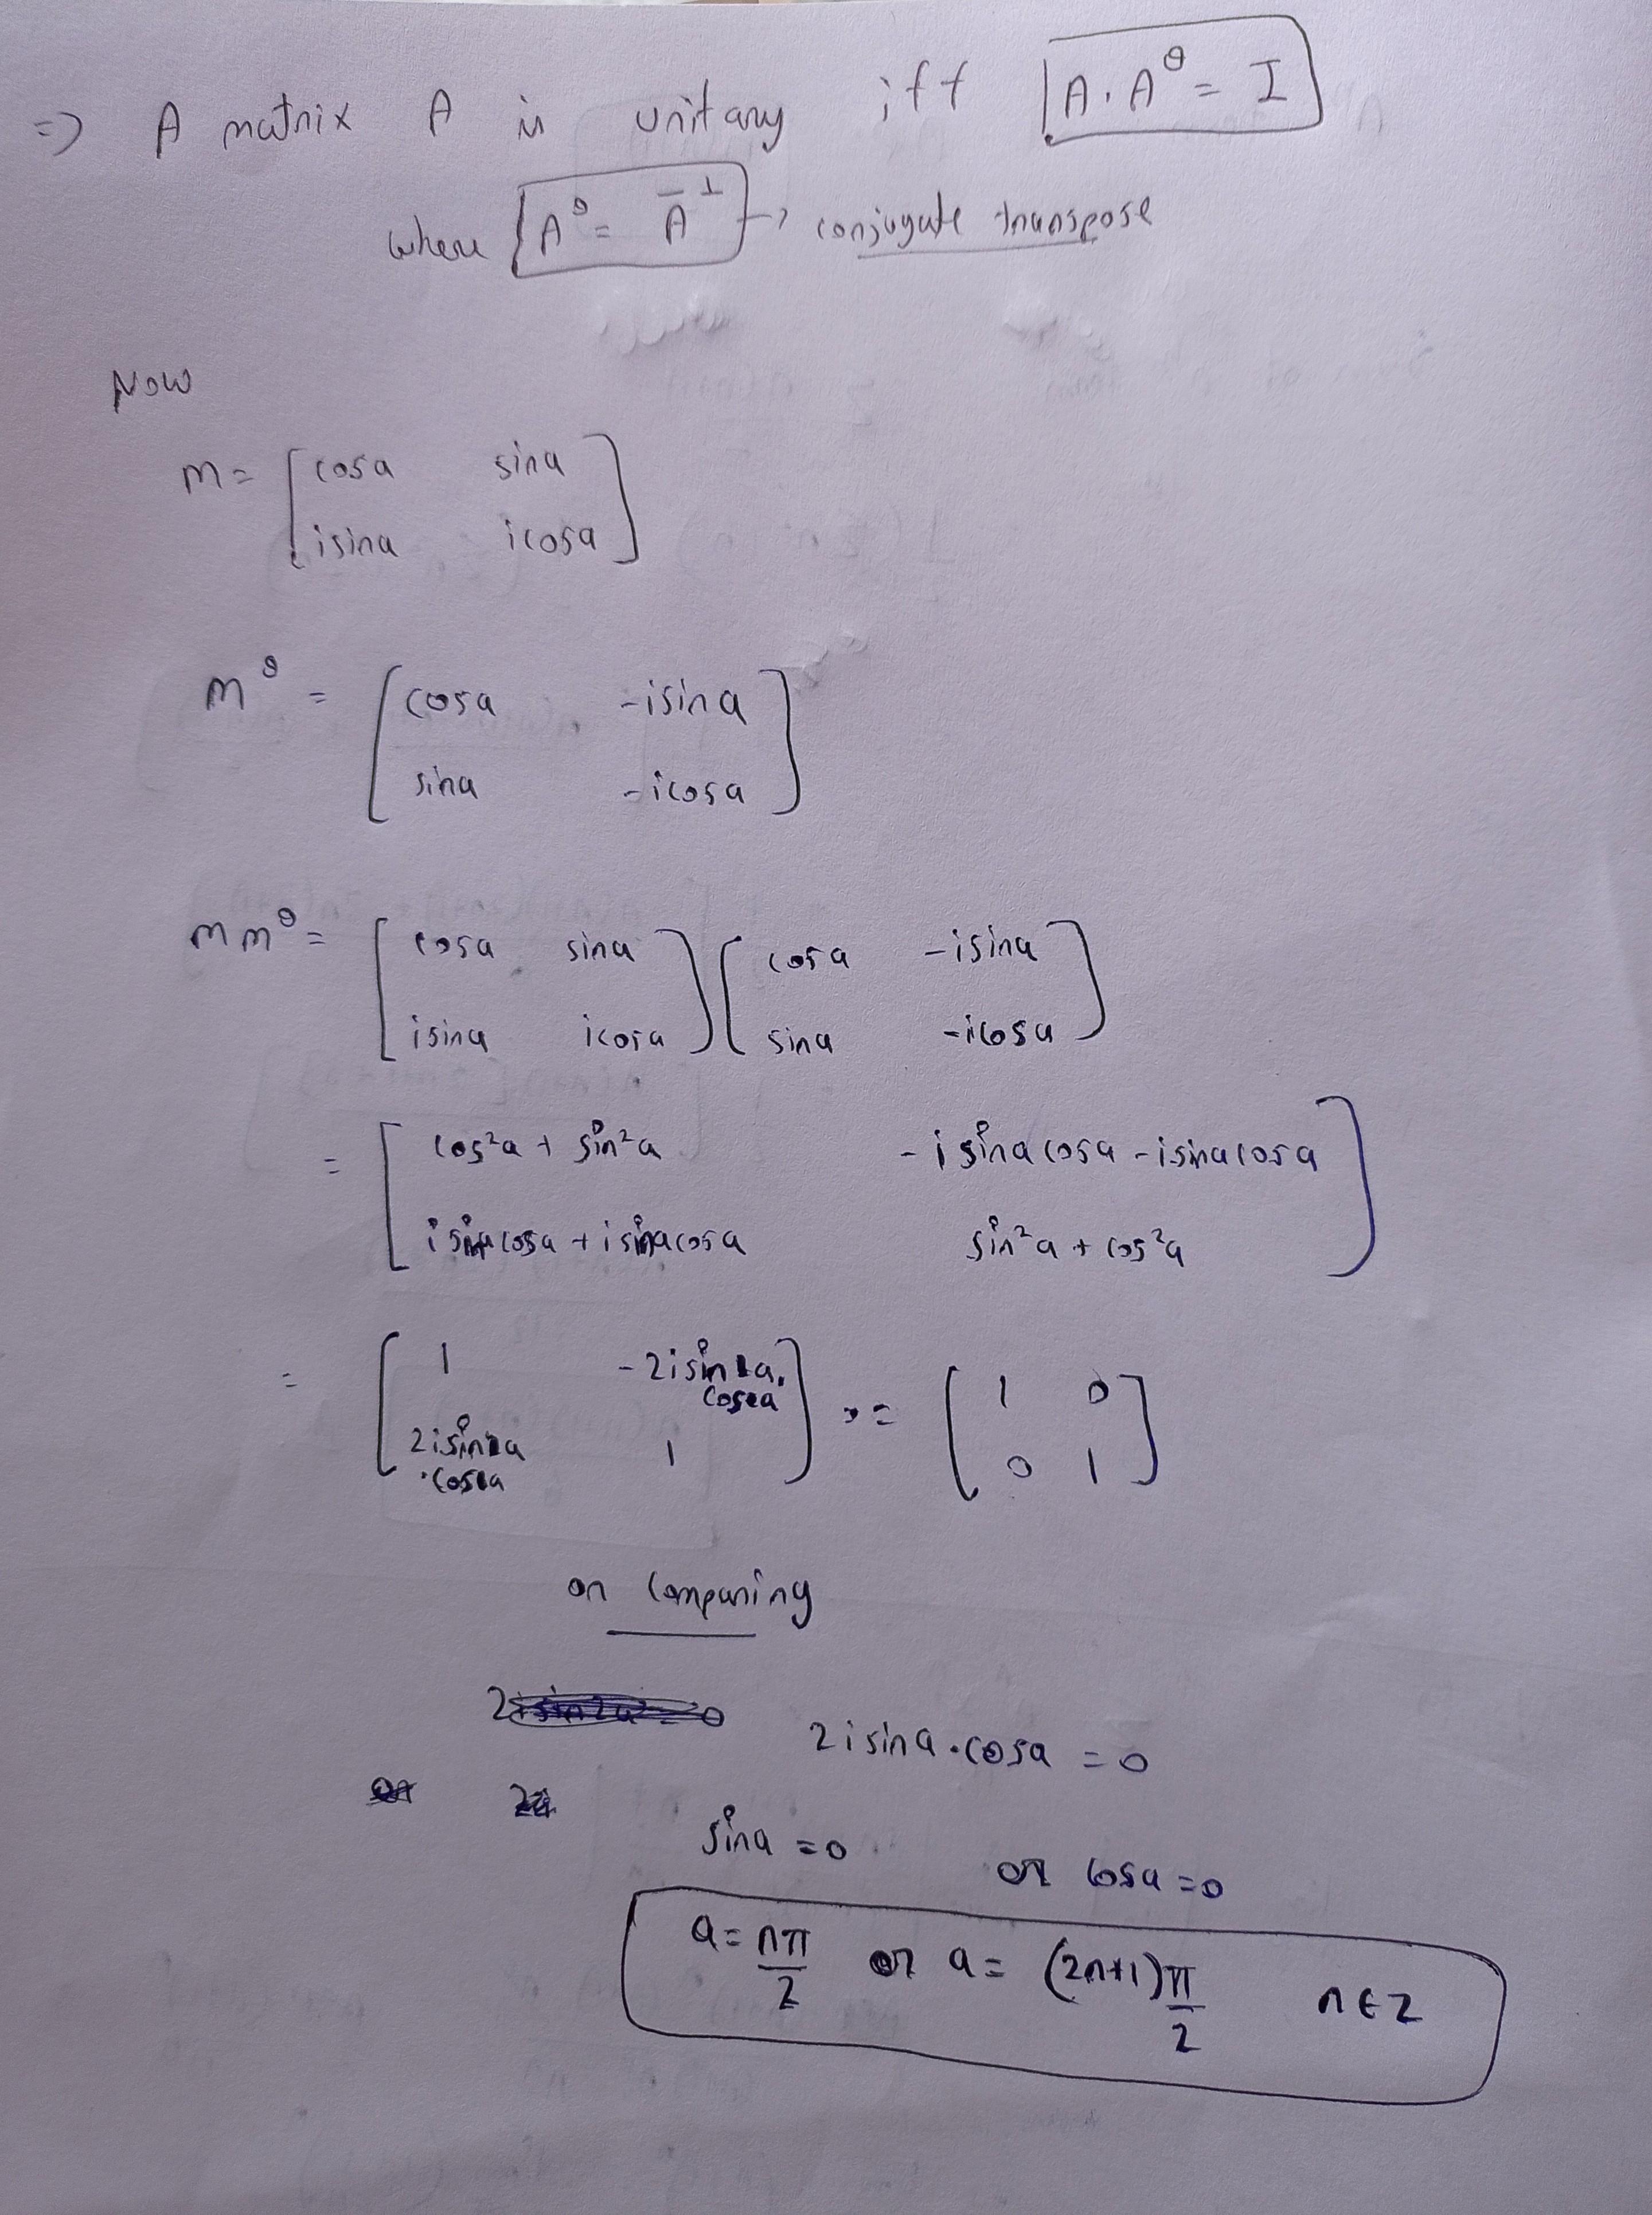 => A matrix A is unitary iff A.A^θ = I
where A^θ = Ā^T → conjugate transpose
Now
m = [ cosa sina
isina icosa ]
m^θ = [ cosa -isina
sina -icosa ]
mm^θ = [ cosa sina ] [ cosa -isina ]
[ isina icosa ] [ sina -icosa ]
= [ cos²a + sin²a -isinacosa - isinacosa ]
[ isinacosa + isinacosa sin²a + cos²a ]
= [ 1 -2isina.cosa ] = [ 1 0 ]
[ 2isina.cosa 1 ] [ 0 1 ]
on comparing
2isina.cosa = 0
sina = 0 or cosa = 0
a = nπ/2 or a = (2n+1)π/2 n∈Z